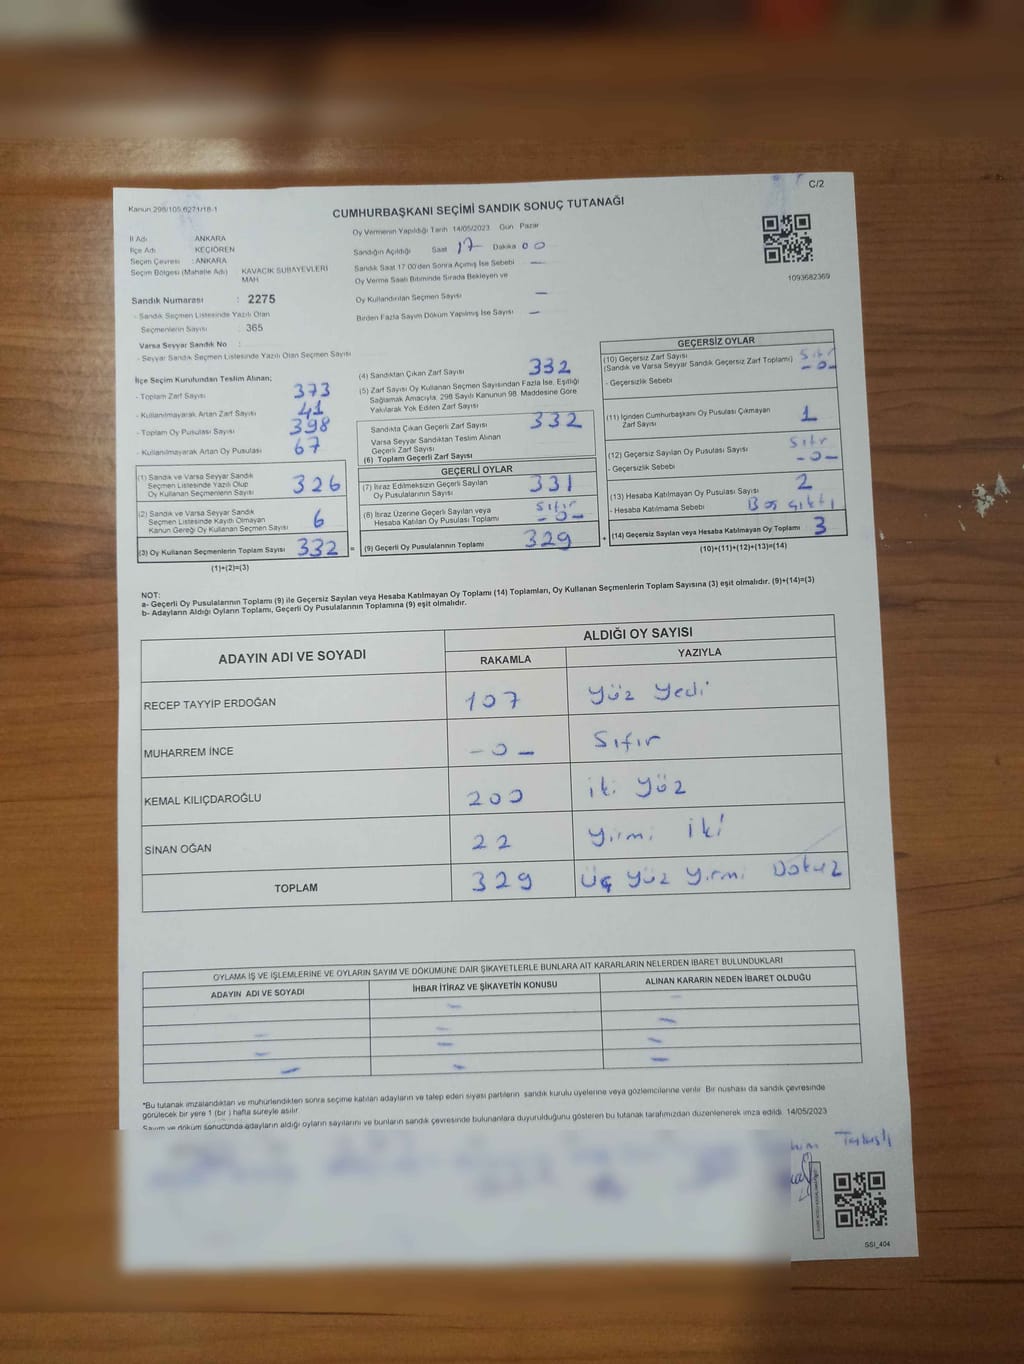 C/2
Kanun 298/105 6271/18-1
CUMHURBAŞKANI SEÇİMİ SANDIK SONUÇ TUTANAĞI
İl Adı ANKARA
İlçe Adı KEÇİÖREN
Seçim Çevresi : ANKARA
Seçim Bölgesi (Mahalle Adı) KAVACIK SUBAYEVLERİ MAH
Sandık Numarası : 2275
- Sandık Seçmen Listesinde Yazılı Olan
Seçmenlerin Sayısı : 365
Varsa Seyyar Sandık No :
- Seyyar Sandık Seçmen Listesinde Yazılı Olan Seçmen Sayısı
Oy Vermenin Yapıldığı Tarih 14/05/2023 Gün Pazar
Sandığın Açıldığı Saat 17 Dakika 00
Sandık Saat 17.00'den Sonra Açılmış İse Sebebi —
Oy Verme Saati Bitiminde Sırada Bekleyen ve
Oy Kullandırılan Seçmen Sayısı —
Birden Fazla Sayım Döküm Yapılmış İse Sayısı —
1093682369
İlçe Seçim Kurulundan Teslim Alınan;
- Toplam Zarf Sayısı 373
- Kullanılmayarak Artan Zarf Sayısı 41
- Toplam Oy Pusulası Sayısı 398
- Kullanılmayarak Artan Oy Pusulası 67
(1) Sandık ve Varsa Seyyar Sandık
Seçmen Listesinde Yazılı Olup
Oy Kullanan Seçmenlerin Sayısı 326
(2) Sandık ve Varsa Seyyar Sandık
Seçmen Listesinde Kayıtlı Olmayan
Kanun Gereği Oy Kullanan Seçmen Sayısı 6
(3) Oy Kullanan Seçmenlerin Toplam Sayısı 332 =
(1)+(2)=(3)
(4) Sandıktan Çıkan Zarf Sayısı 332
(5) Zarf Sayısı Oy Kullanan Seçmen Sayısından Fazla İse, Eşitliği
Sağlamak Amacıyla, 298 Sayılı Kanunun 98. Maddesine Göre
Yakılarak Yok Edilen Zarf Sayısı
Sandıkta Çıkan Geçerli Zarf Sayısı 332
Varsa Seyyar Sandıktan Teslim Alınan
Geçerli Zarf Sayısı
(6) Toplam Geçerli Zarf Sayısı
GEÇERLİ OYLAR
(7) İtiraz Edilmeksizin Geçerli Sayılan
Oy Pusulalarının Sayısı 331
(8) İtiraz Üzerine Geçerli Sayılan veya
Hesaba Katılan Oy Pusulası Toplamı Sıfır -0-
(9) Geçerli Oy Pusulalarının Toplamı 329 +
GEÇERSİZ OYLAR
(10) Geçersiz Zarf Sayısı
(Sandık ve Varsa Seyyar Sandık Geçersiz Zarf Toplamı) Sıfır -0-
- Geçersizlik Sebebi
(11) İçinden Cumhurbaşkanı Oy Pusulası Çıkmayan
Zarf Sayısı 1
(12) Geçersiz Sayılan Oy Pusulası Sayısı Sıfır -0-
- Geçersizlik Sebebi
(13) Hesaba Katılmayan Oy Pusulası Sayısı 2
- Hesaba Katılmama Sebebi Boş çıktı
(14) Geçersiz Sayılan veya Hesaba Katılmayan Oy Toplamı 3
(10)+(11)+(12)+(13)=(14)
NOT:
a- Geçerli Oy Pusulalarının Toplamı (9) ile Geçersiz Sayılan veya Hesaba Katılmayan Oy Toplamı (14) Toplamları, Oy Kullanan Seçmenlerin Toplam Sayısına (3) eşit olmalıdır. (9)+(14)=(3)
b- Adayların Aldığı Oyların Toplamı, Geçerli Oy Pusulalarının Toplamına (9) eşit olmalıdır.
ADAYIN ADI VE SOYADI ALDIĞI OY SAYISI
RAKAMLA YAZIYLA
RECEP TAYYİP ERDOĞAN 107 Yüz Yedi
MUHARREM İNCE -0- Sıfır
KEMAL KILIÇDAROĞLU 200 İki Yüz
SİNAN OĞAN 22 Yirmi İki
TOPLAM 329 Üç Yüz Yirmi Dokuz
OYLAMA İŞ VE İŞLEMLERİNE VE OYLARIN SAYIM VE DÖKÜMÜNE DAİR ŞİKAYETLERLE BUNLARA AİT KARARLARIN NELERDEN İBARET BULUNDUKLARI
ADAYIN ADI VE SOYADI İHBAR İTİRAZ VE ŞİKAYETİN KONUSU ALINAN KARARIN NEDEN İBARET OLDUĞU
*Bu tutanak imzalandıktan ve mühürlendikten sonra seçime katılan adayların ve talep eden siyasi partilerin sandık kurulu üyelerine veya gözlemcilerine verilir. Bir nüshası da sandık çevresinde
görülecek bir yere 1 (bir ) hafta süreyle asılır.
Sayım ve döküm sonucunda adayların aldığı oyların sayılarını ve bunların sandık çevresinde bulunanlara duyurulduğunu gösteren bu tutanak tarafımızdan düzenlenerek imza edildi. 14/05/2023
SSI_404